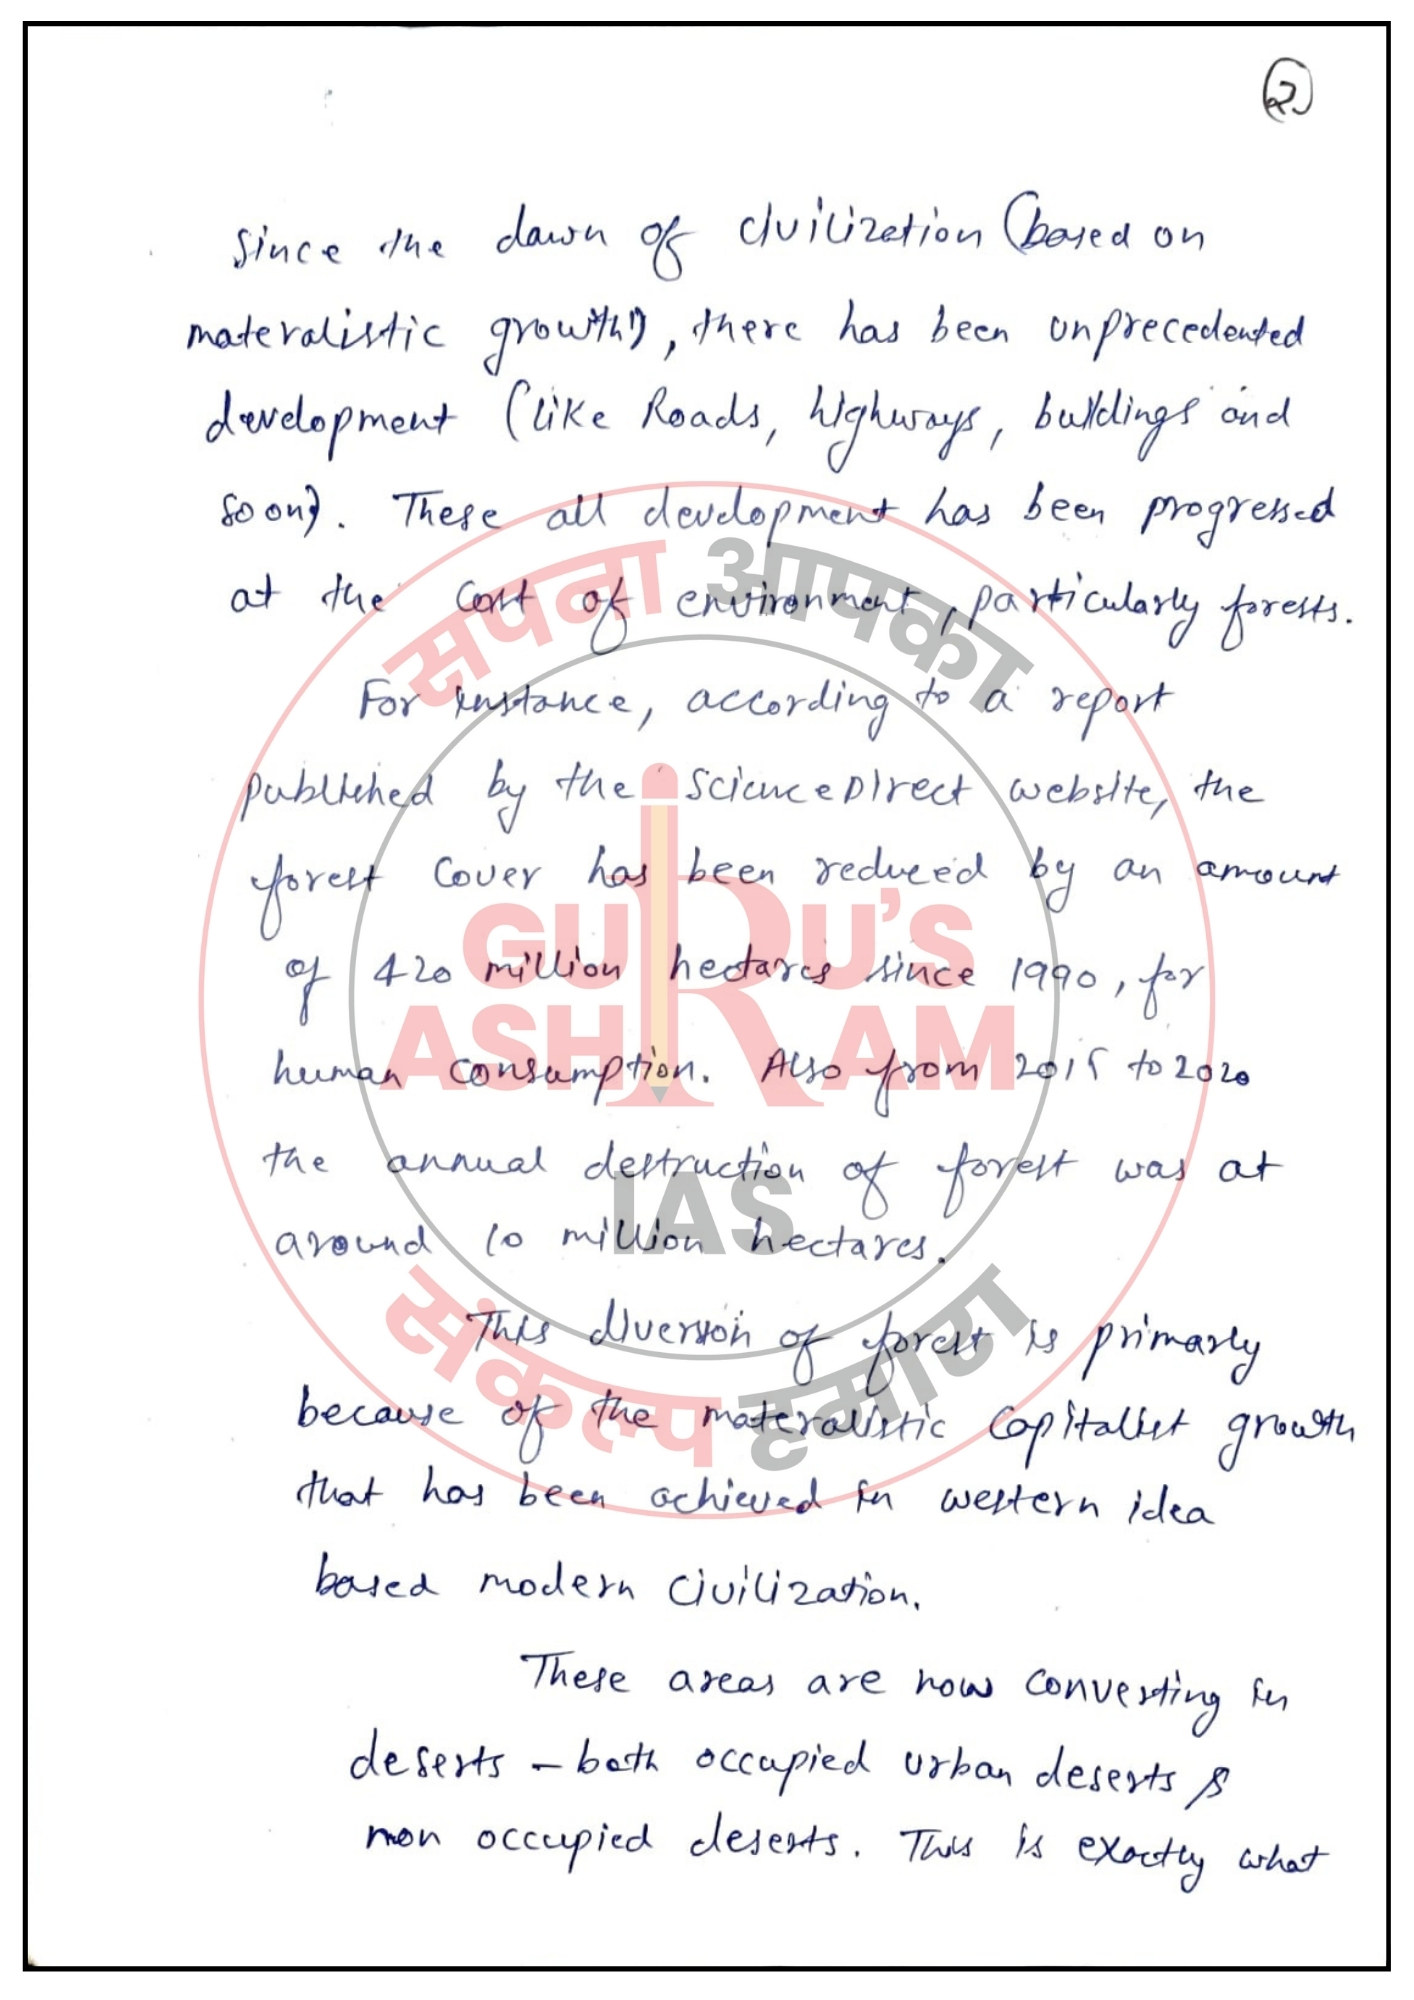 2
Since the dawn of civilization (based on
materalistic growth), there has been unprecedented
development (like Roads, highways, buildings and
soon). These all development has been progressed
at the cost of environment, particularly forests.
For instance, according to a report
published by the ScienceDirect website, the
forest cover has been reduced by an amount
of 420 million hectares since 1990, for
human consumption. Also from 2015 to 2020
the annual destruction of forest was at
around 10 million hectares.
This diversion of forest is primarly
because of the materalistic capitalist growth
that has been achieved in western idea
based modern civilization.
These areas are now converting in
deserts - both occupied urban deserts &
non occupied deserts. This is exactly what
सपना आपका
GURU'S
ASHRAM
IAS
संकल्प हमारा